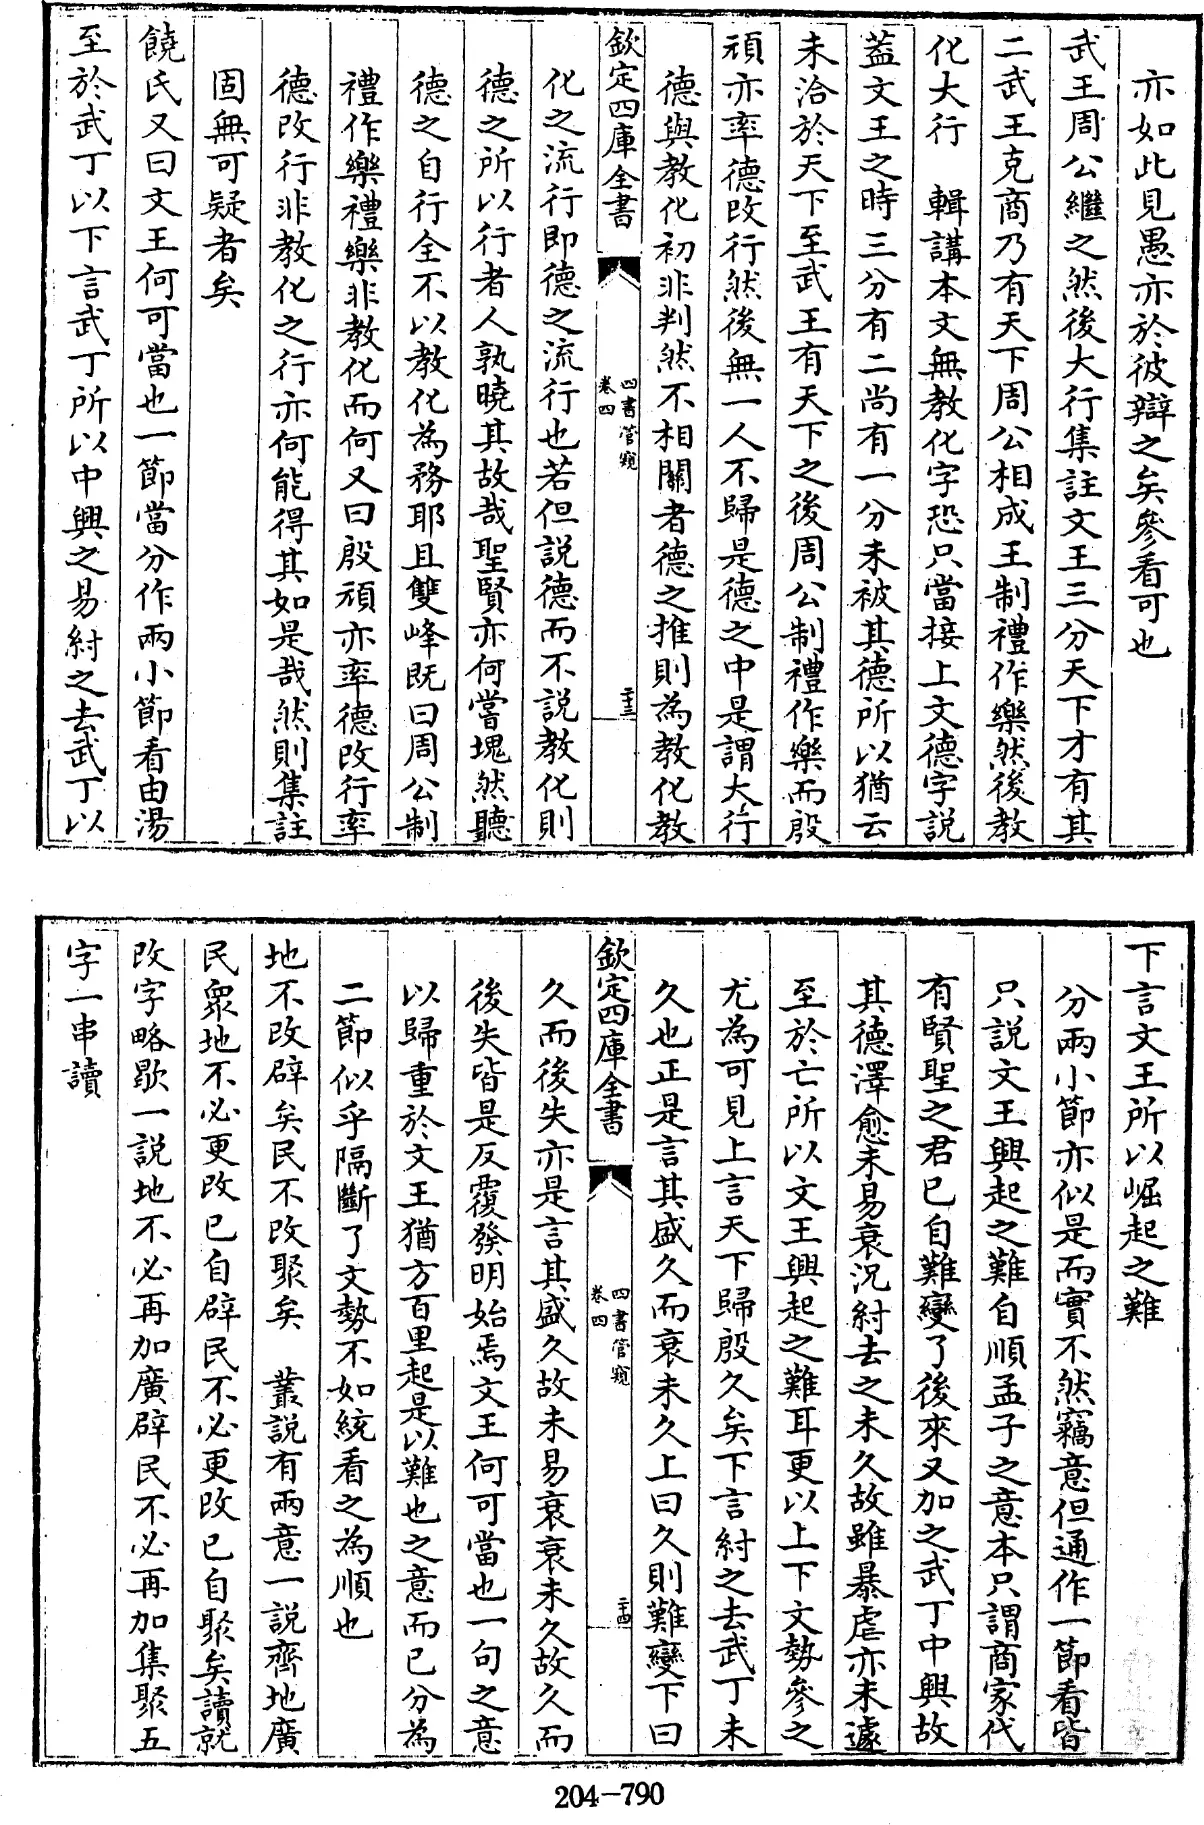 亦如此見愚亦於彼辯之矣參看可也
武王周公繼之然後大行集註文王三分天下才有其
二武王克商乃有天下周公相成王制禮作樂然後教
化大行　輯講本文無教化字恐只當接上文德字說
葢文王之時三分有二尚有一分未被其德所以猶云
未洽於天下至武王有天下之後周公制禮作樂而殷
頑亦率德改行然後無一人不歸是德之中是謂大行
德與教化初非判然不相關者德之推則為教化教
欽定四庫全書
四書管窺
卷四
二十三
化之流行即德之流行也若但説德而不説教化則
德之所以行者人孰曉其故哉聖賢亦何嘗塊然聽
德之自行全不以教化為務耶且雙峰既曰周公制
禮作樂禮樂非教化而何又曰殷頑亦率德改行率
德改行非教化之行亦何能得其如是哉然則集註
固無可疑者矣
饒氏又曰文王何可當也一節當分作兩小節看由湯
至於武丁以下言武丁所以中興之易紂之去武丁以
下言文王所以崛起之難
分兩小節亦似是而實不然竊意但通作一節看皆
只説文王興起之難自順孟子之意本只謂商家代
有賢聖之君已自難變了後來又加之武丁中興故
其德澤愈未易衰況紂去之未久故雖暴虐亦未遽
至於亡所以文王興起之難耳更以上下文勢參之
尤為可見上言天下歸殷久矣下言紂之去武丁未
久也正是言其盛久而衰未久上曰久則難變下曰
欽定四庫全書
四書管窺
卷四
二十四
久而後失亦是言其盛久故未易衰衰未久故久而
後失皆是反覆發明始焉文王何可當也一句之意
以歸重於文王猶方百里起是以難也之意而已分為
二節似乎隔斷了文勢不如統看之為順也
地不改辟矣民不改聚矣　叢說有兩意一説齊地廣
民衆地不必更改已自辟民不必更改已自聚矣讀就
改字略歇一説地不必再加廣辟民不必再加集聚五
字一串讀
204-790